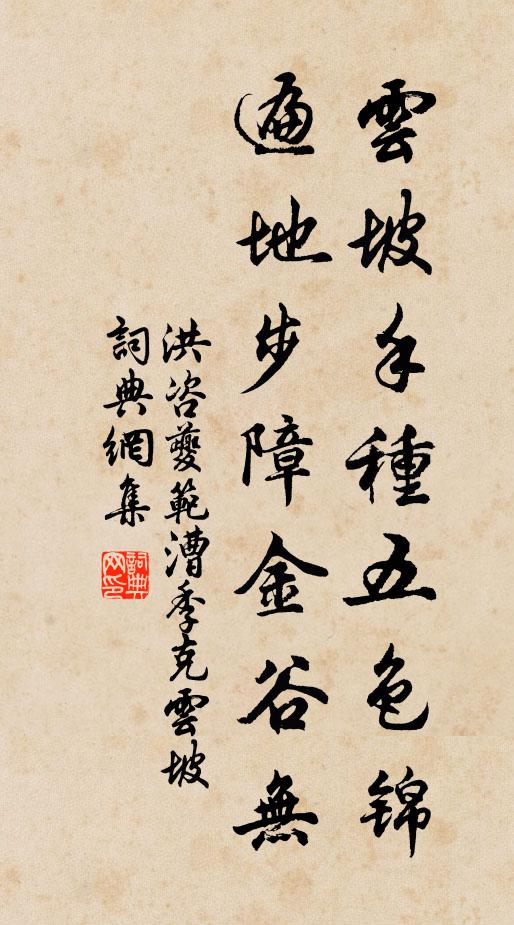 雲坡手種五色錦
遍地步障金谷無
洪咨夔範漕季克雲坡
詞典網集
詞典
网印